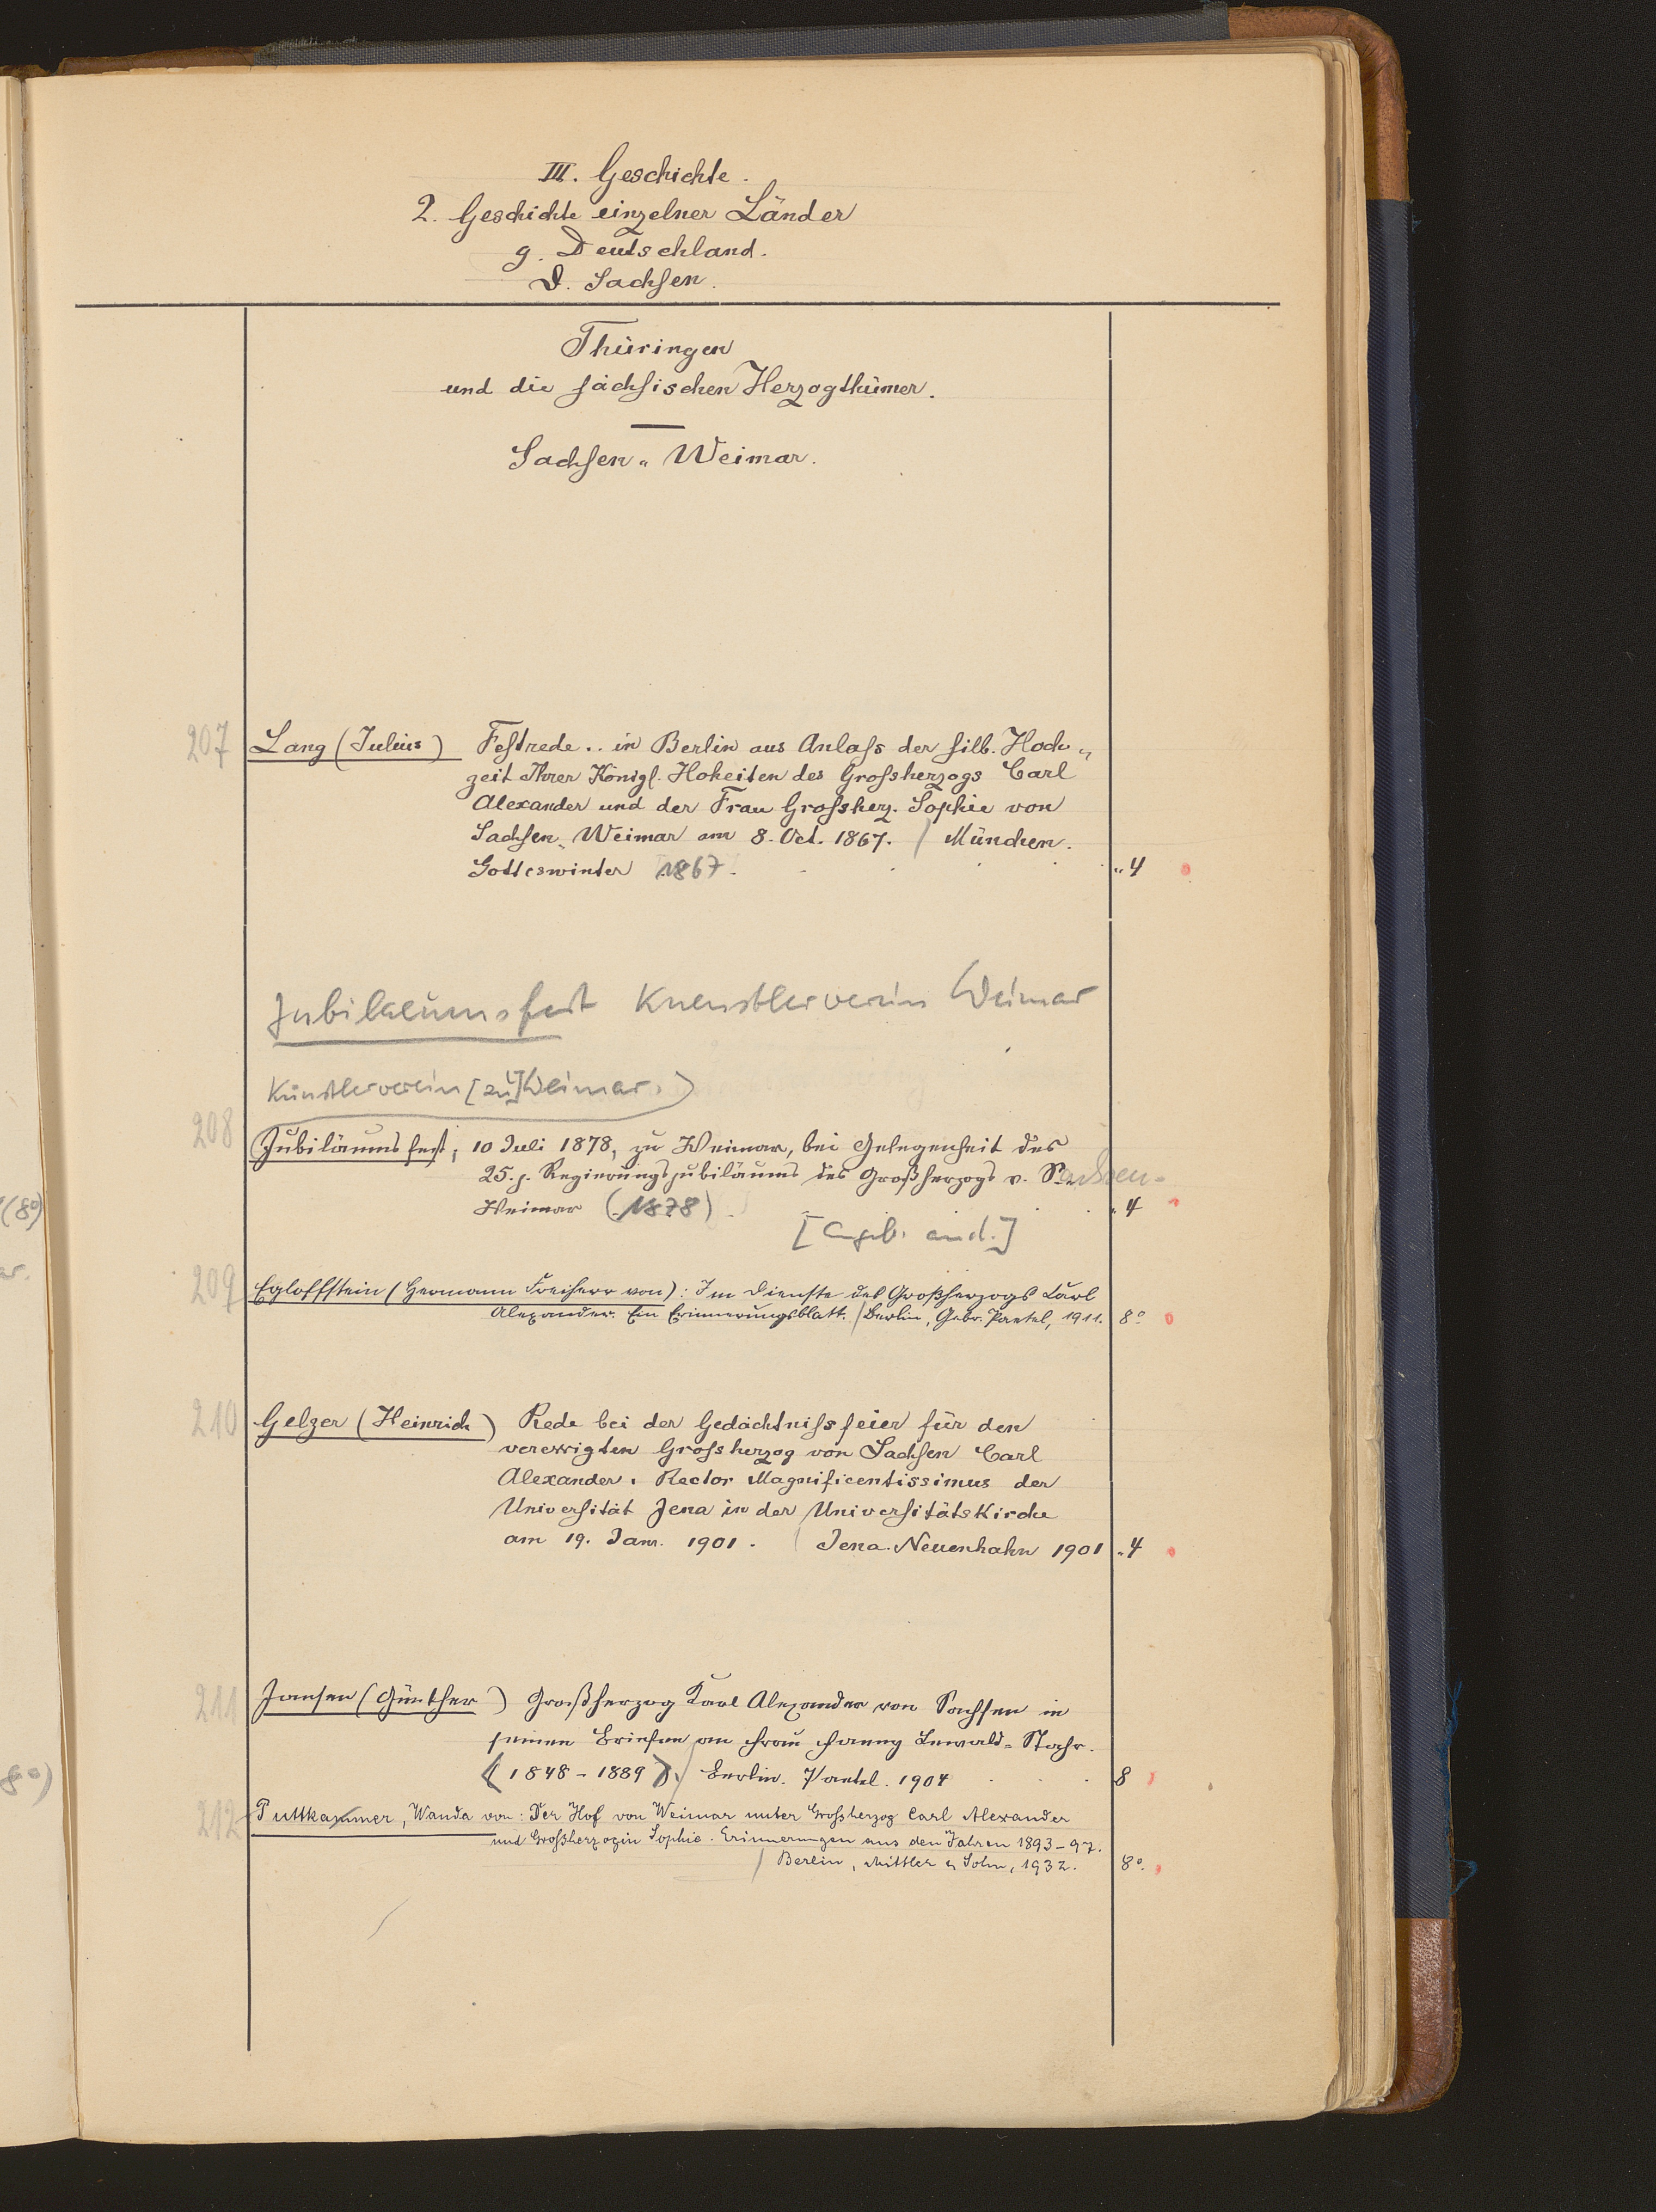 III. Geschichte.
2. Geschichte einzelner Länder
g. Deutschland.
D. Sachsen.
Thüringen
und die sächsischen Herzogthümer.
Sachsen-Weimar.
207 Lang (Julius) Festrede.. in Berlin aus Anlaß der silb. Hoch-
zeit Ihrer Königl. Hoheiten des Großherzogs Carl
Alexander und der Frau Großherz. Sophie von
Sachsen-Weimar am 8. Oct. 1867. / München.
Gotteswinter 1867. 4
Jubilaeumsfest Kuenstlerverein Weimar
Künstlerverein [zu] Weimar.)
208 Jubiläumsfest, 10 Juli 1878, zu Weimar, bei Gelegenheit des
25. j. Regierungsjubiläums des Großherzogs v. Sachsen-
Weimar (1878). 4
[Angeb. and.]
209 Egloffstein (Hermann Freiherr von): Im Dienste des Großherzogs Carl
Alexander. Ein Erinnerungsblatt. / Berlin, Gebr. Paetel, 1911. 8°
210 Gelzer (Heinrich) Rede bei der Gedächtnißfeier für den
verewigten Großherzog von Sachsen Carl
Alexander, Rector Magnificentissimus der
Universität Jena in der Universitätskirche
am 19. Jan. 1901. / Jena. Neuenhahn 1901 4
211 Jansen (Günther) Großherzog Karl Alexander von Sachsen in
seinen Briefen an Frau Fanny Lewald-Stahr.
(1848-1889). / Berlin. Paetel. 1904 8
212 Puttkammer, Wanda von: Der Hof von Weimar unter Großherzog Carl Alexander
und Großherzogin Sophie. Erinnerungen aus den Jahren 1893-97.
/ Berlin, Mittler & Sohn, 1932. 8°.
(8°)
ar.
8°)